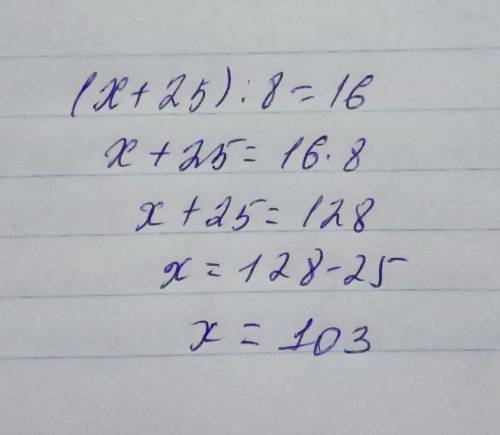 (x+25):8=16
x+25=16·8
x+25=128
x=128-25
x=103